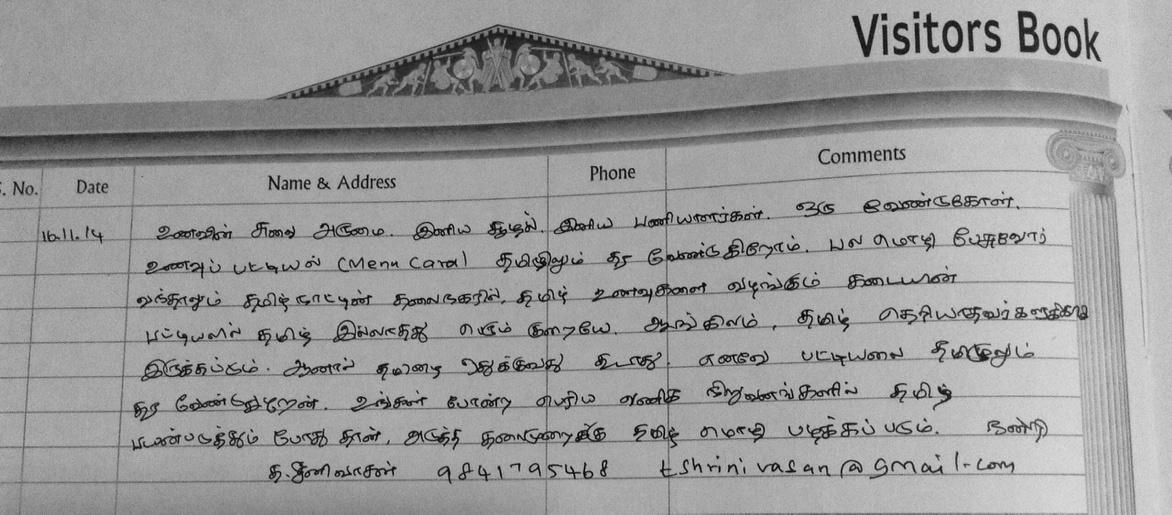 Visitors Book
S. No. Date Name & Address Phone Comments
16.11.14 உணவின் சுவை அருமை. இனிய சூழல். இனிய பணியாளர்கள். ஒரு வேண்டுகோள்.
உணவுப் பட்டியல் (Menu Card) தமிழிலும் தர வேண்டுகிறோம். பல மொழி பேசுவோர்
வந்தாலும் தமிழ் நாட்டின் தலைநகரில், தமிழ் உணவுகளை வழங்கும் கடையின்
பட்டியலில் தமிழ் இல்லாதது பெரும் குறையே. ஆங்கிலம், தமிழ் தெரியாதவர்களுக்காக
இருக்கட்டும். ஆனால் தமிழை ஒதுக்குவது கூடாது. எனவே பட்டியலை தமிழிலும்
தர வேண்டுகிறேன். உங்கள் போன்ற பெரிய வணிக நிறுவனங்களில் தமிழ்
பயன்படுத்தும் போது தான், அடுத்த தலைமுறைக்கு தமிழ் மொழி படிக்கப் படும். நன்றி
த. சீனிவாசன் 9841795468 tshrinivasan@gmail.com